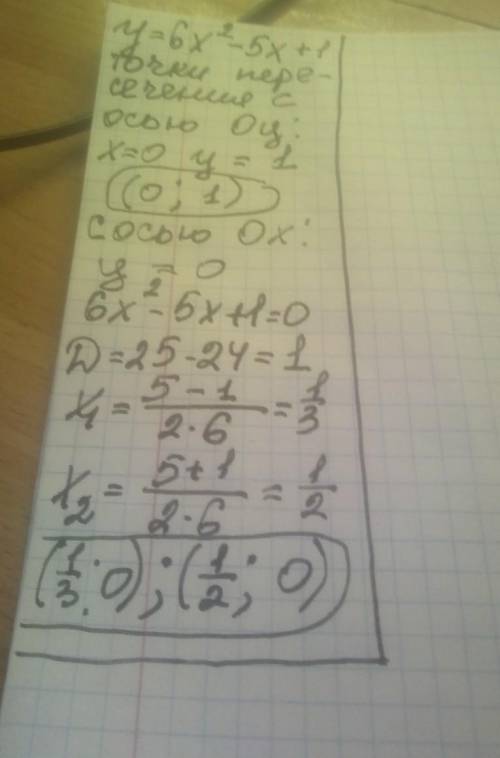 y=6x²-5x+1
точки пере-
сечения с
осью Оу:
x=0 y = 1
(0; 1)
с осью Ох:
y = 0
6x²-5x+1=0
D=25-24=1
x₁ = (5-1)/(2·6) = 1/3
x₂ = (5+1)/(2·6) = 1/2
(1/3; 0); (1/2; 0)